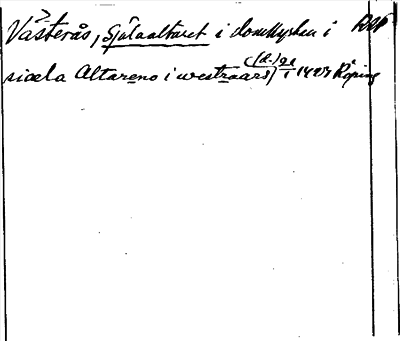 Västerås, Själaaltaret i domkyrkan i RAp
siæla Altareno i westraars (d.) 21/1 1427 Köping